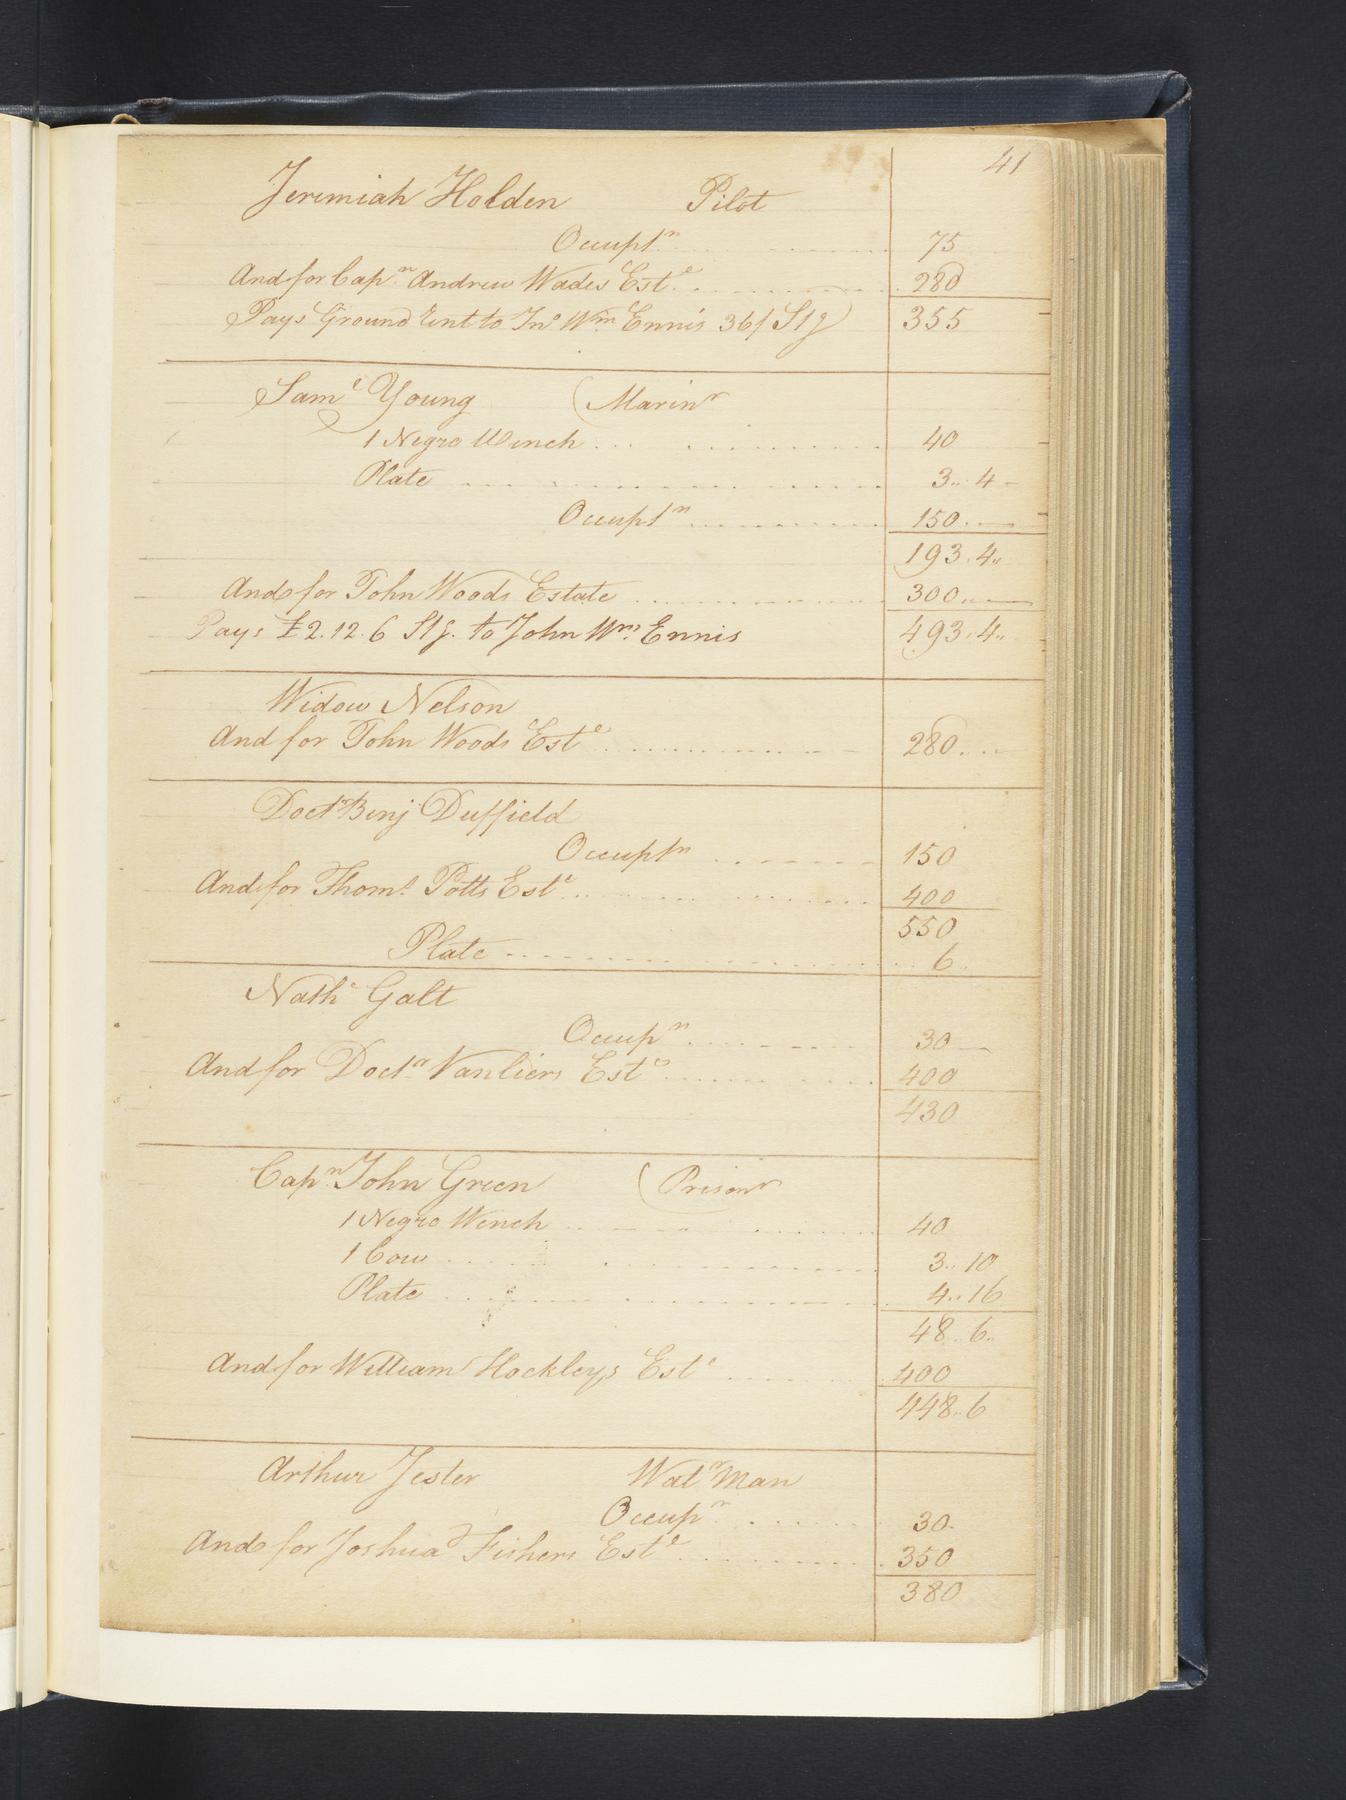 41
Jeremiah Holden Pilot
Occupt.n 75
And for Cap.n Andrew Wades Est.e 280
Pays Ground Rent to Jn.o Wm Ennis 36/ Stg 355
Sam.l Young (Marin.r
1 Negro Wench 40
Plate 3..4
Occupt.n 150
193.4
And for John Woods Estate 300
Pays £2.12.6 Stg. to John Wm. Ennis 493.4
Widow Nelson
And for John Woods Est.e 280
Doct.r Benj Duffield
Occupt.n 150
And for Thom.s Potts Est.e 400
550
Plate 6
Nath.l Galt
Occup.n 30
And for Doct.r Vanliers Est.e 400
430
Cap.n John Green (Prison.r
1 Negro Wench 40
1 Cow 3..10
Plate 4..16
48..6
And for William Hockleys Est.e 400
448..6
Arthur Jester Wat.r Man
Occup.n 30
And for Joshua Fishers Est.e 350
380